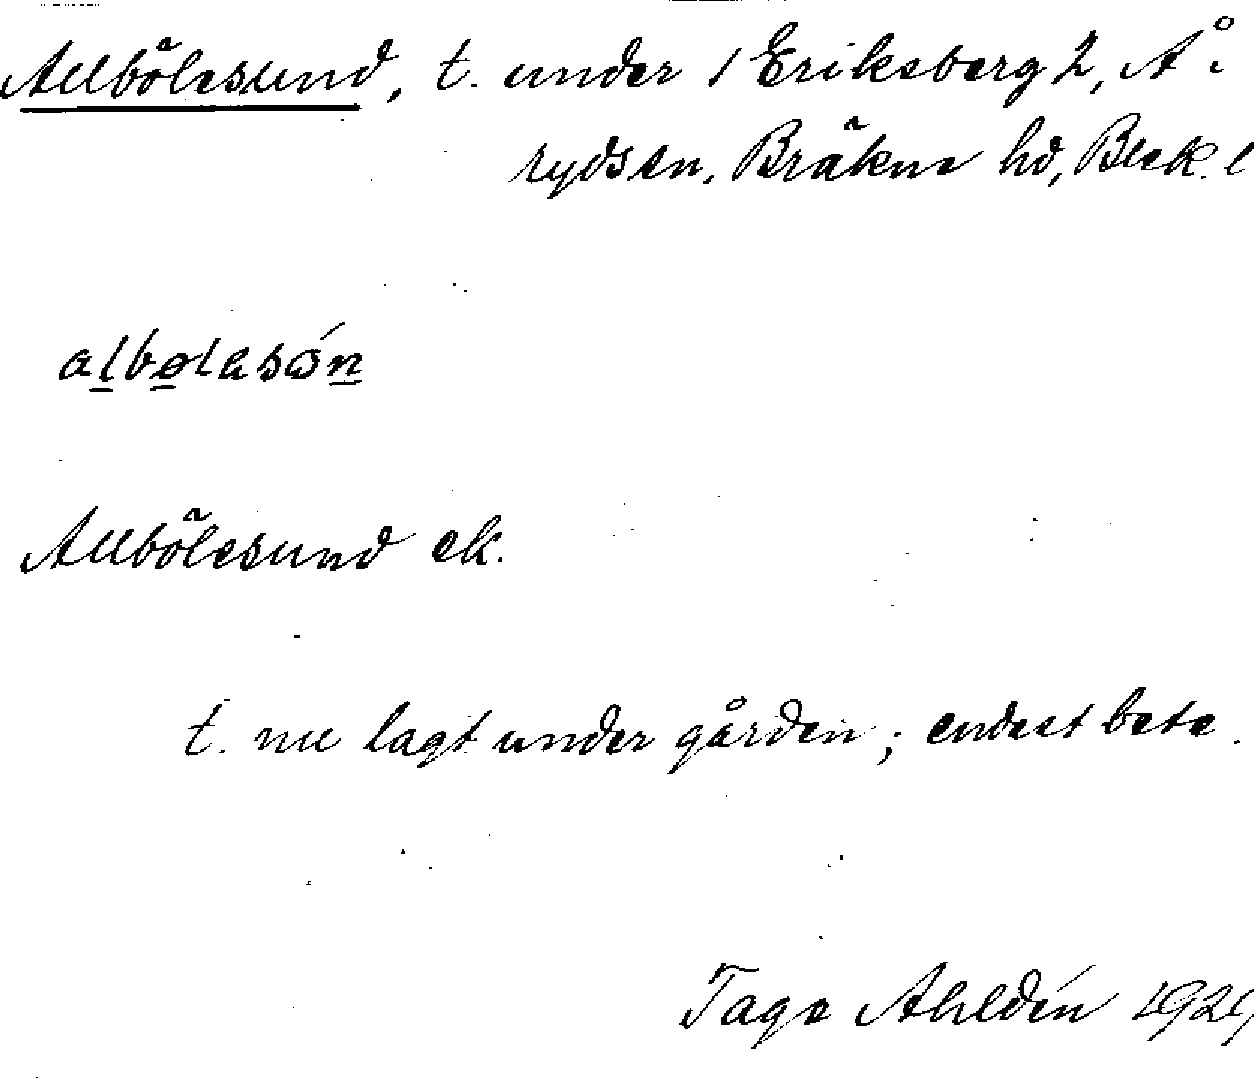 Allbölesund, t. under 1 Eriksberg 2, Å
rydsgn, Bräkne hd, Blek. l
Allbölesund ek.
t. nu lagt under gården; endast bete.
Tage Ahldén 1929